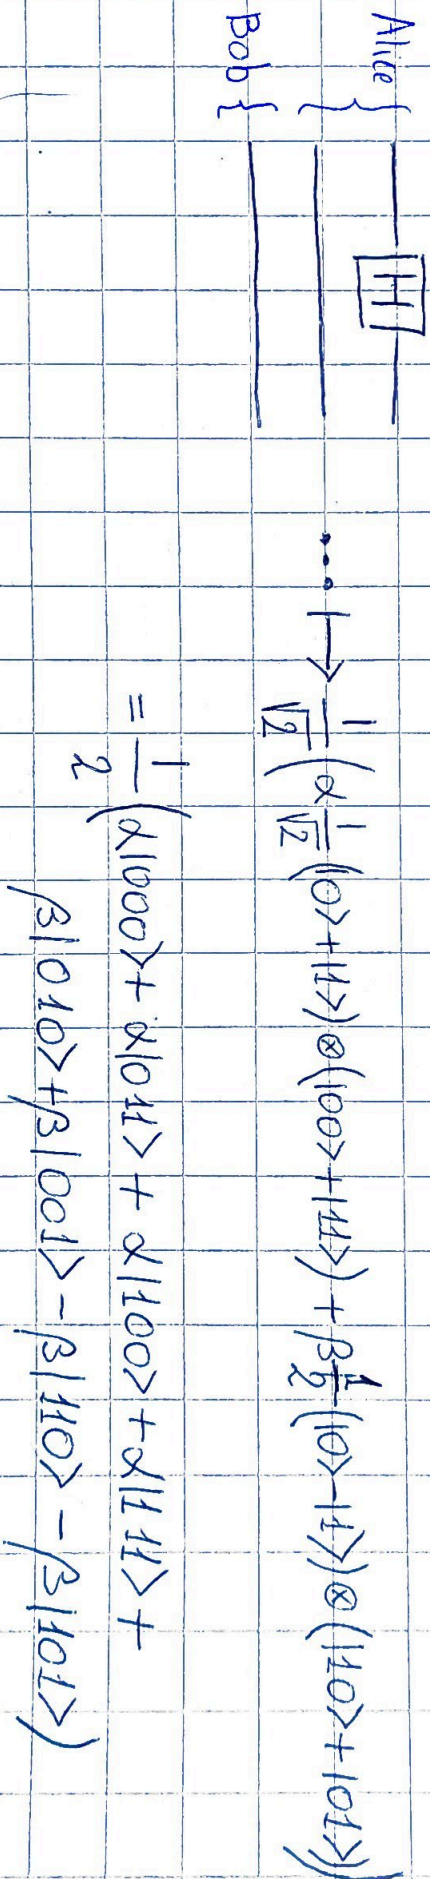 Alice { H
Bob {
... ↦ 1/√2 (α 1/√2 (|0> + |1>) ⊗ (|00> + |11>) + β 1/2 (|0> - |1>) ⊗ (|10> + |01>))
= 1/2 (α|000> + α|011> + α|100> + α|111> +
β|010> + β|001> - β|110> - β|101>)